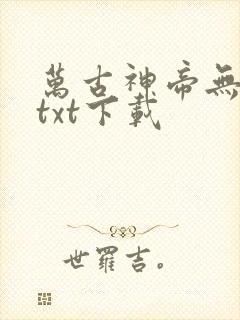 萬古神帝無
txt下載
世羅吉。